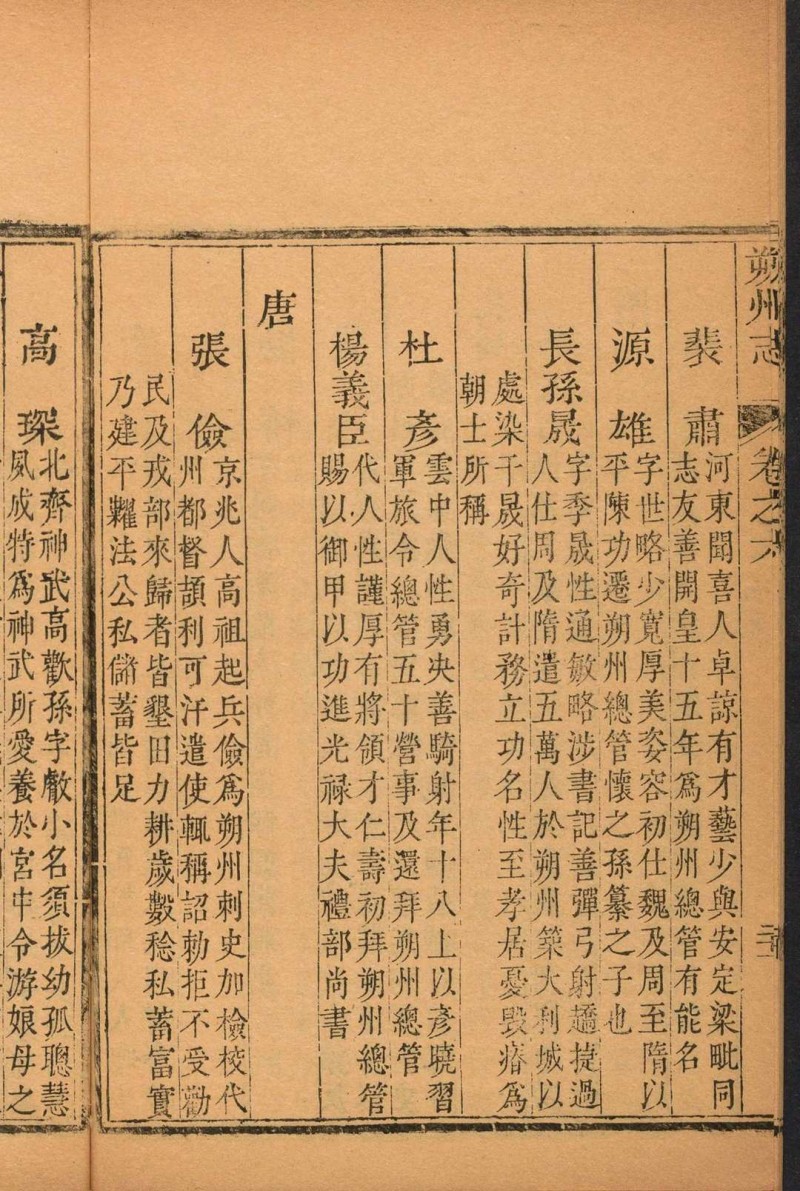 朔州志
卷之六
裴肅
河東聞喜人卓諒有才藝少與安定梁毗同
志友善開皇十五年爲朔州總管有能名
源雄
字世略少寬厚美姿容初仕魏及周至隋以
平陳功遷朔州總管懷之孫纂之子也
長孫晟
字季晟性通敏略涉書記善彈弓射趫捷過
人仕周及隋遣五萬人於朔州築大利城以
處染干晟好奇計務立功名性至孝居憂毀瘠爲
朝士所稱
杜彥
雲中人性勇决善騎射年十八上以彥曉習
軍旅令總管五十營事及還拜朔州總管
楊義臣
代人性謹厚有將領才仁壽初拜朔州總管
賜以御甲以功進光禄大夫禮部尚書
唐
張儉
京兆人高祖起兵儉爲朔州刺史加檢校代
州都督頡利可汗遣使輒稱詔勅拒不受勸
民及戎部來歸者皆墾田力耕歲數稔私蓄富實
乃建平糶法公私儲蓄皆足
高琛
北齊神武高歡孫字㪣小名須拔幼孤聰慧
夙成特爲神武所愛養於宮中令游娘母之